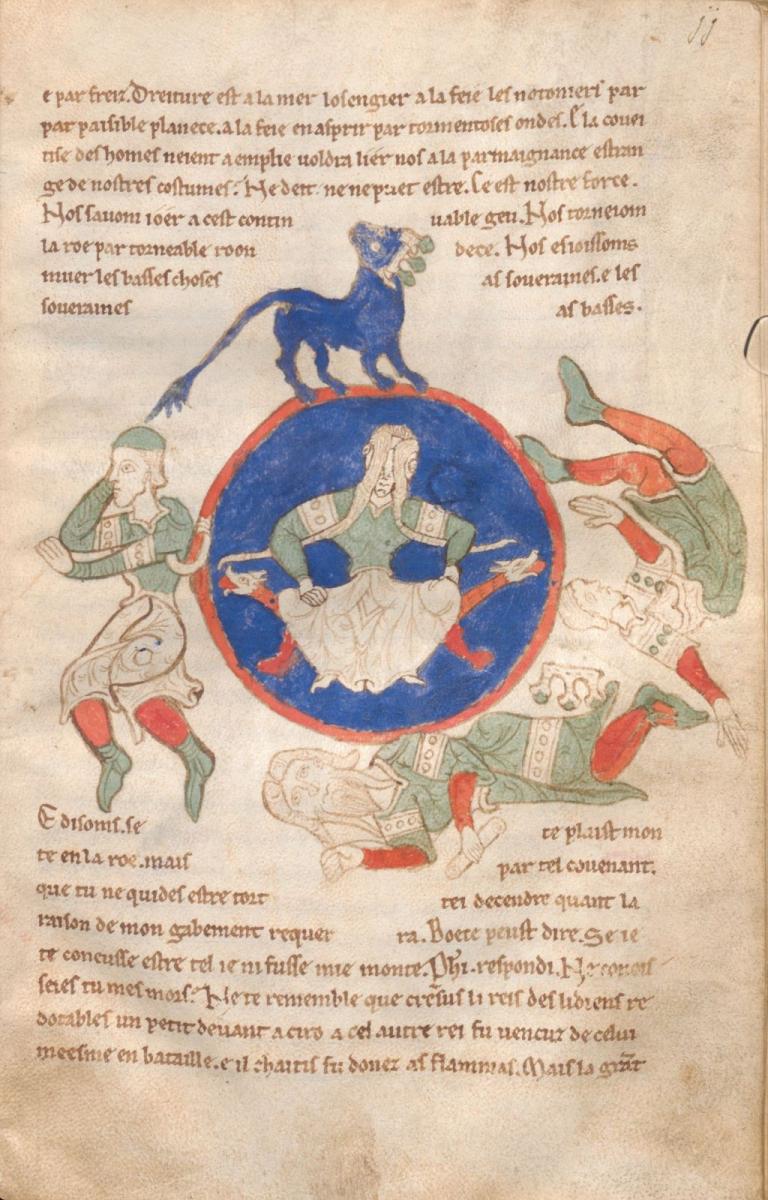 ij
e par freiz. Dreiture est a la mer losengier a la feie les notoniers par
par paisible planece. a la feie enasprir par tormentoses ondes. E la covei
tise des homes neient aemplie voldra lier nos a la parmaignance estran
ge de nostres costumes. Ne deit ne ne puet estre. Ce est nostre force.
Nos savom ioer a cest contin uable geu. Nos torneiom
la roe par torneable roon dece. Nos esioissoms
muer les basses choses as soveraines. e les
soveraines as basses.
E disoms. se te plaist mon
te en la roe. mais par tel covenant.
que tu ne quides estre tort tei decendre quant la
raison de mon gabement requer ra. Boece peust dire. Se ie
te concusse estre tel ie ni fusse mie monte. Phi. respondi. Ne
seies tu mes mors. Ne te remembre que cresus li reis des lidiens re
dotables un petit devant a ciro a cel autre rei fu vencuz de celui
meesme en bataille. e il chaitis fu donez as flammas. Mais la